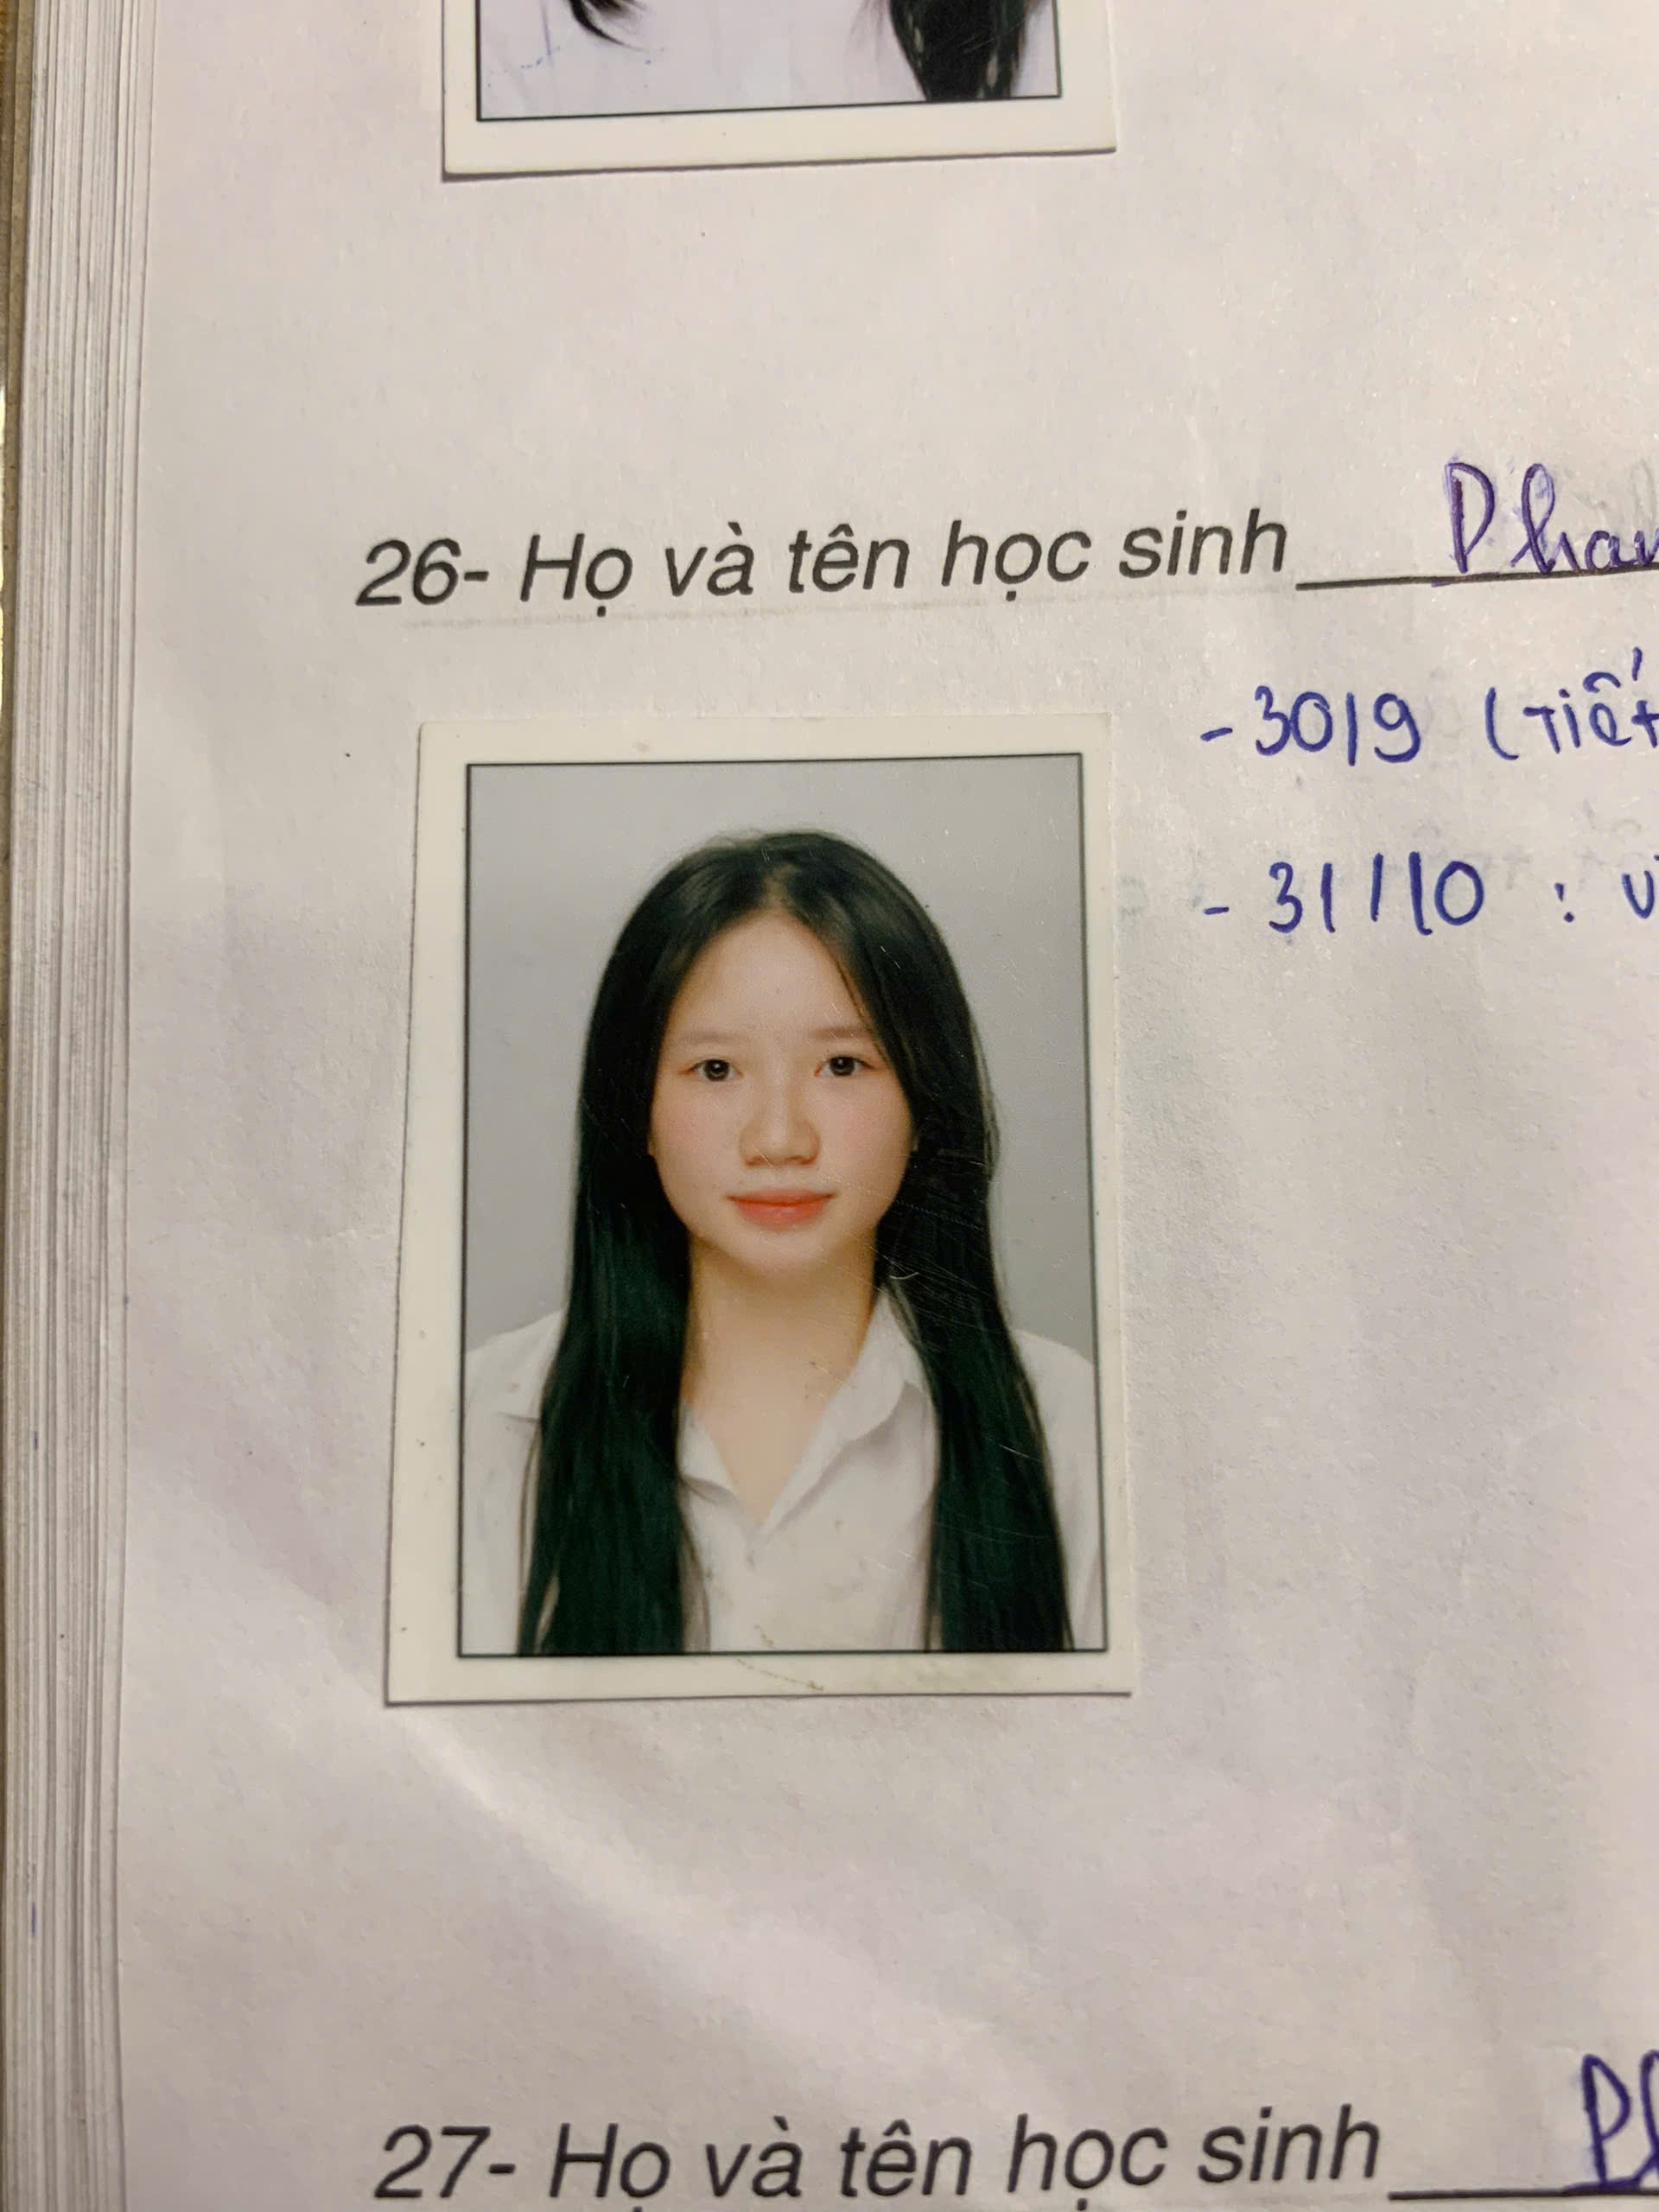 26- Họ và tên học sinh
- 30/9 (Tiết
- 31/10 :
27- Họ và tên học sinh